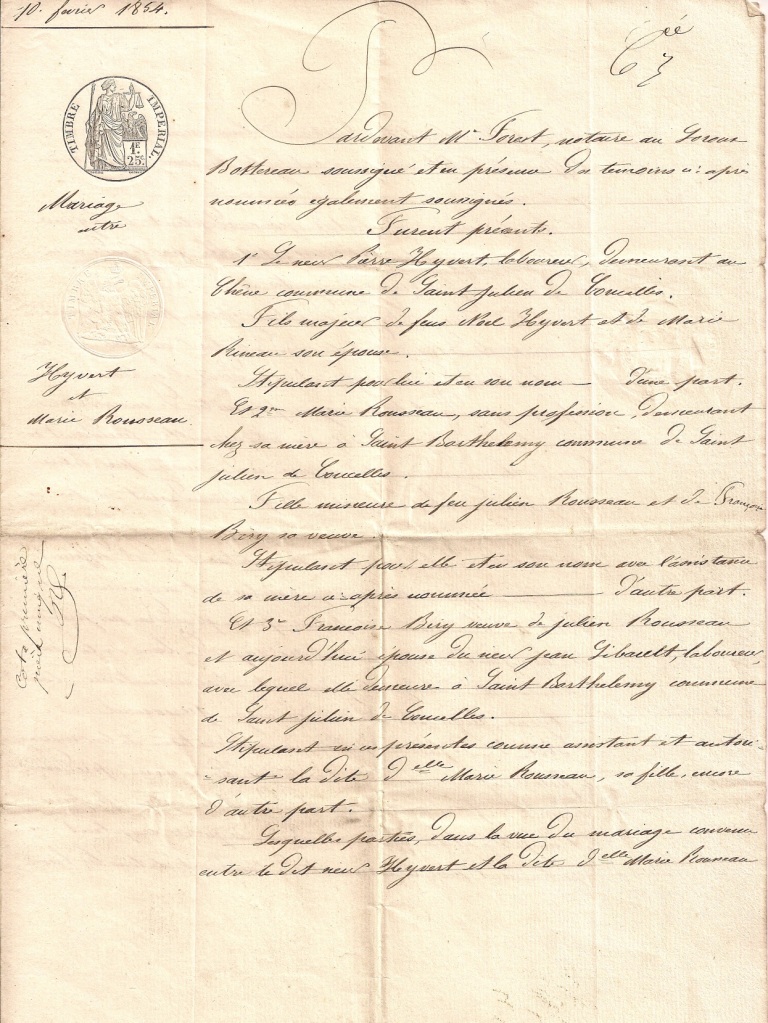 10. février 1854.
Cée
3
TIMBRE IMPERIAL
1F.
25c.
Mariage
entre
Hyvert
et
Marie Rousseau.
Cote première
pièce unique
Pardevant Me Forest, notaire au Loroux
Bottereau soussigné et en présence des temoins ci-après
nommés également soussignés.
Furent présents.
1° Le sieur Pierre Hyvert, laboureur, demeurant au
Chêne commune de Saint Julien de Concelles.
Fils majeur de feus Noel Hyvert et de Marie
Rineau son épouse.
Stipulant pour lui et en son nom — d'une part.
Et 2° Marie Rousseau, sans profession, demeurant
chez sa mère à Saint Barthelemy commune de Saint
julien de Concelles.
Fille mineure de feu julien Rousseau et de Françoise
Biry sa veuve.
Stipulant pour elle et en son nom avec l'assistance
de sa mère ci-après nommée — d'autre part.
Et 3° Francoise Biry veuve de julien Rousseau
et aujourd'hui épouse du sieur jean Libault, laboureur,
avec lequel elle demeure à Saint Barthelemy commune
de Saint julien de Concelles.
Stipulant en ces présentes comme assistant et autori-
sant la dite delle Marie Rousseau, sa fille, encore
d'autre part.
Lesquelles parties, dans la vue du mariage convenu
entre le dit sieur Hyvert et la dite delle Marie Rousseau